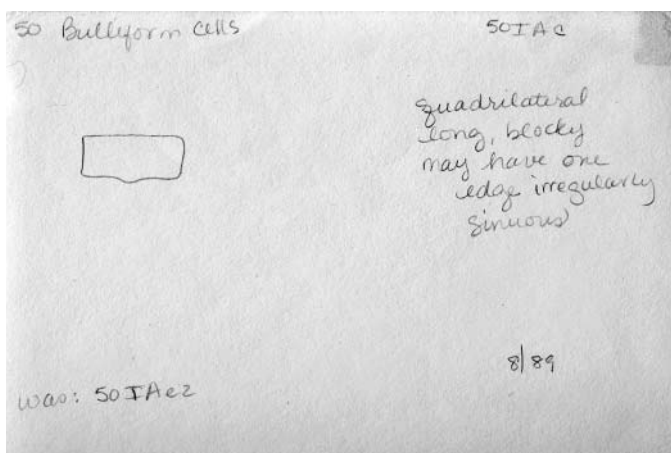 50 Bulliform cells
50IAc
quadrilateral
long, blocky
may have one
edge irregularly
sinuous
8/89
was: 50IAe2